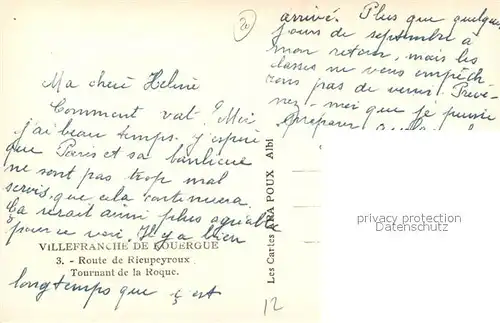 Ma chère Helène
Comment vat? Moi
j'ai beau temps. J'espère
que Paris et sa banlieue
ne sont pas trop mal
servis, que cela continuera
Ca serait ainsi plus agréable
pour ce voir. Il y a bien
VILLEFRANCHE DE ROUERGUE
3. - Route de Rieupeyroux
Tournant de la Roque.
longtemps que c'est
20
arrivé. Plus que quelques
jours de septembre à
mon retour, mais les
classes ne vous empêch
rons pas de venir. Préve
nez-moi que je puisse
préparer
Les Cartes APA POUX Albi
12
privacy protection
Datenschutz